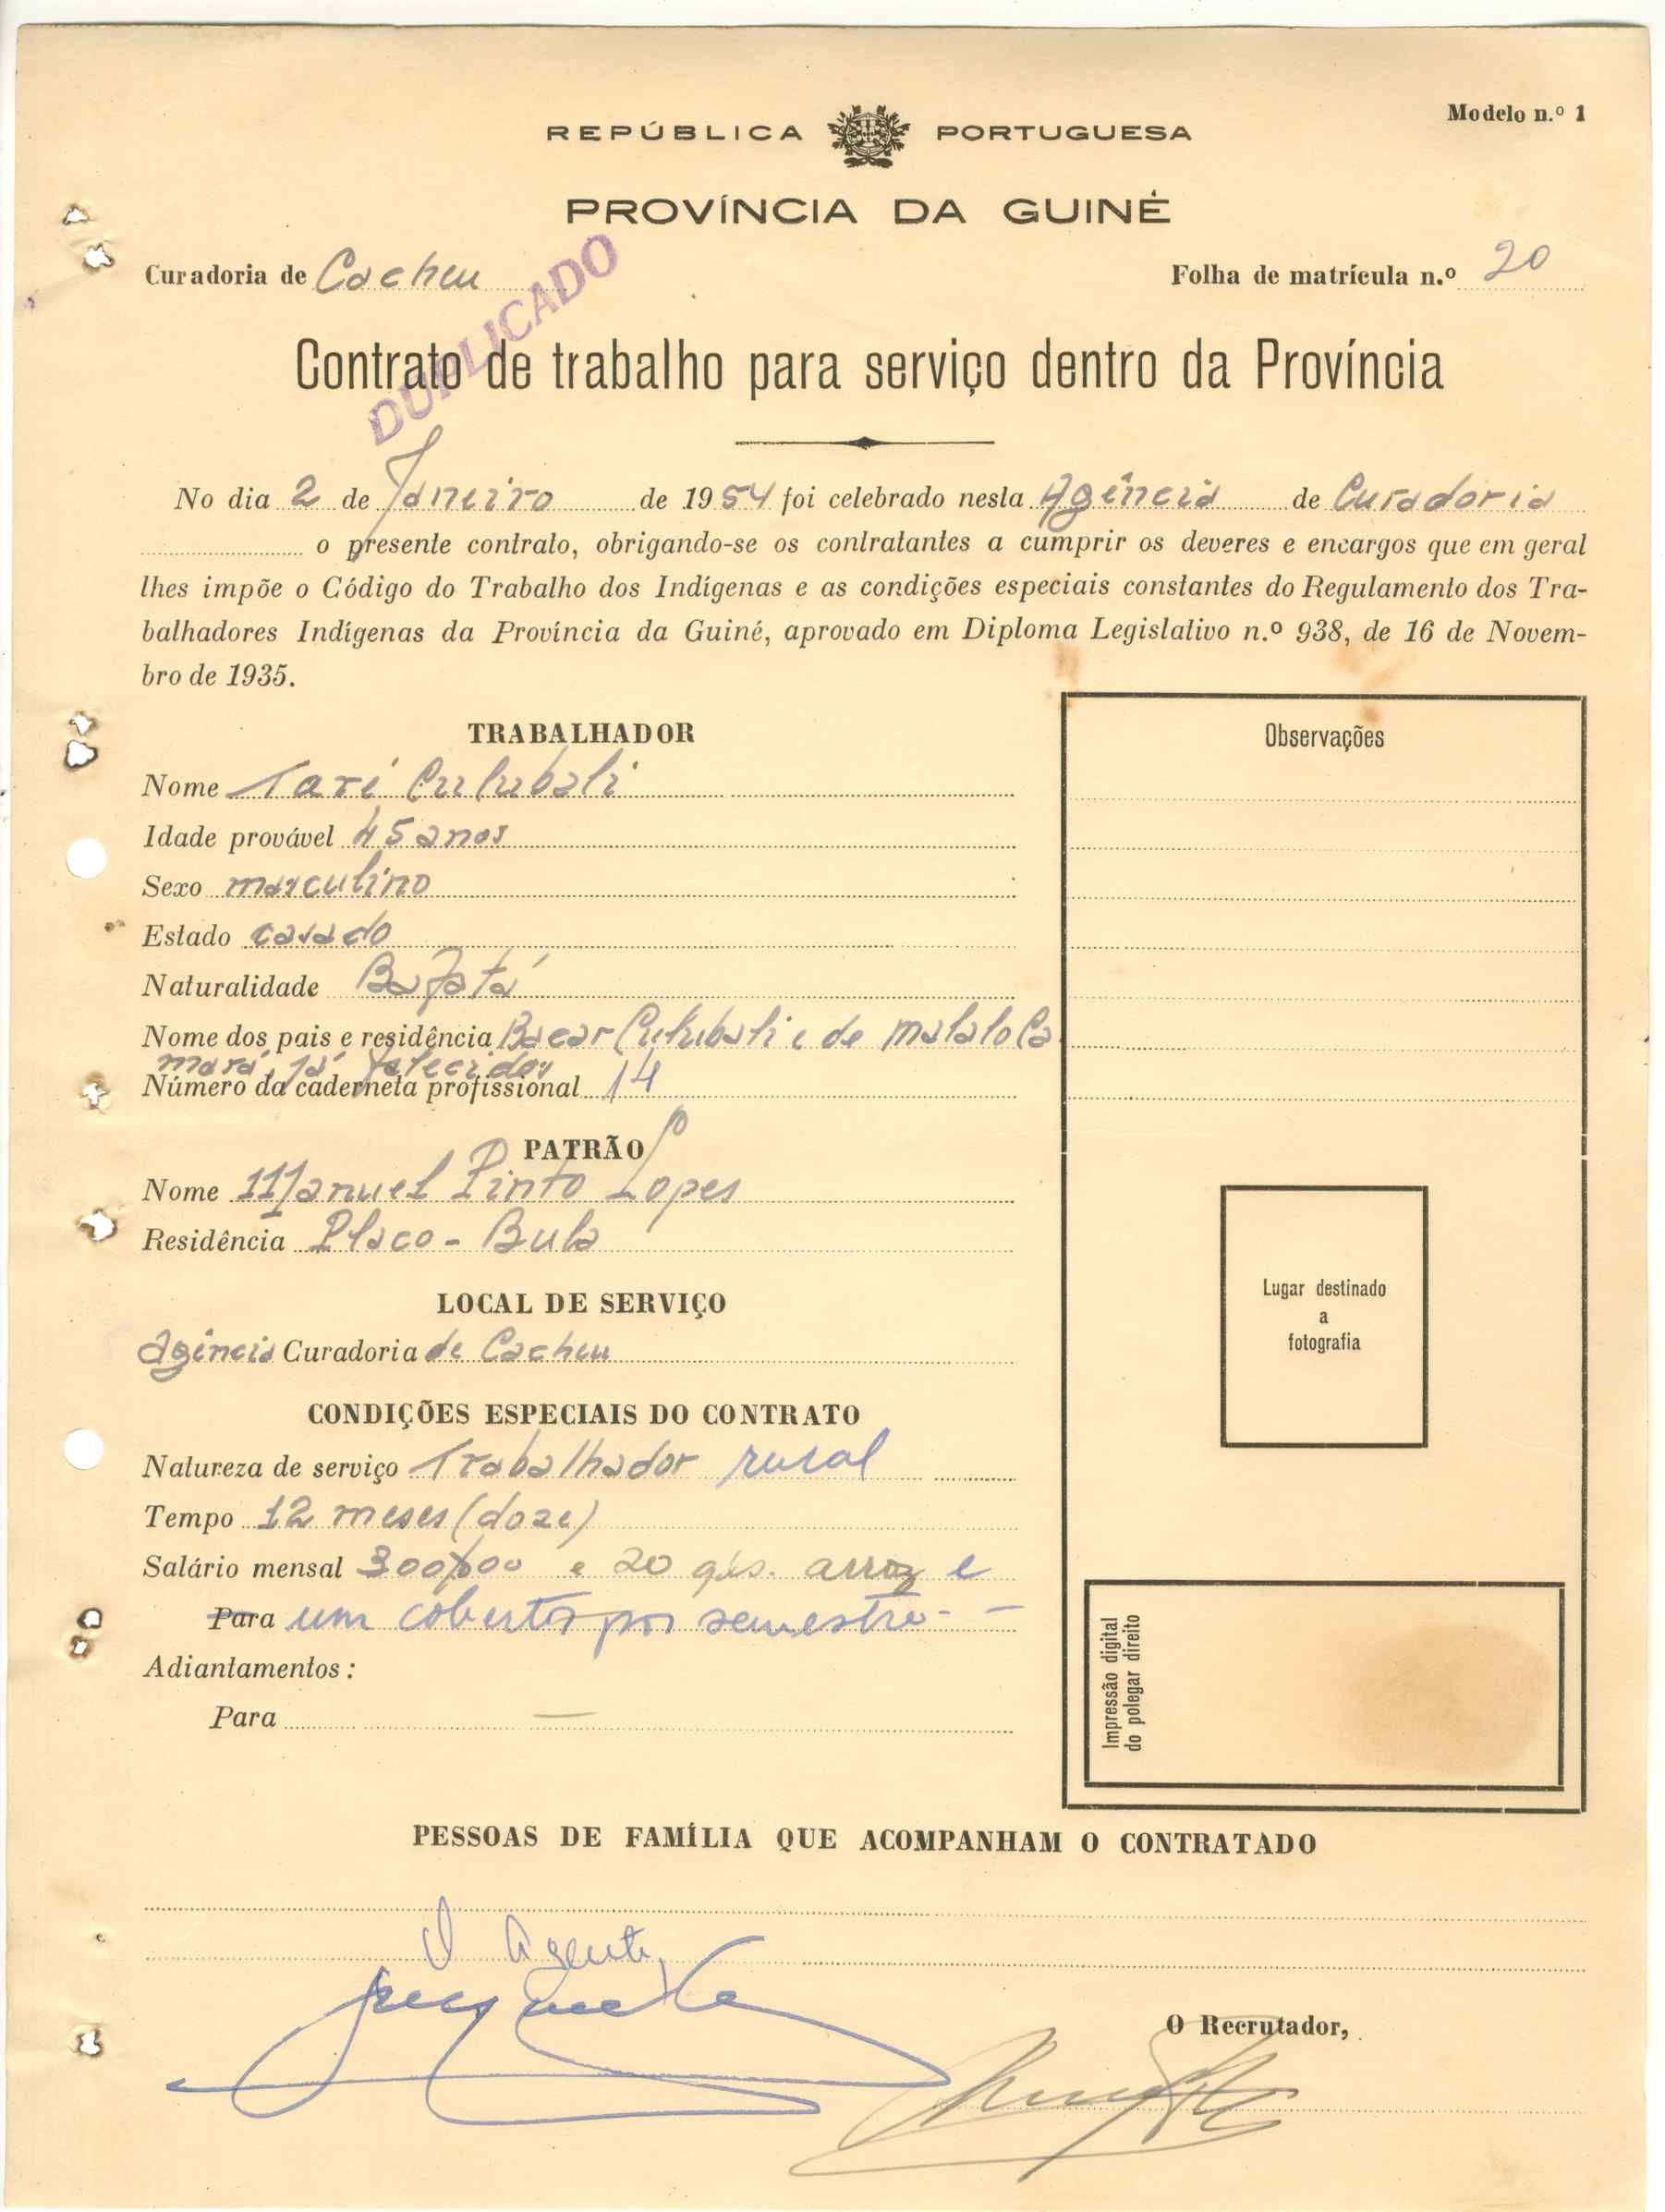 Modelo n.º 1
REPÚBLICA PORTUGUESA
PROVÍNCIA DA GUINÉ
Curadoria de Cacheu
Folha de matrícula n.º 20
DUPLICADO
Contrato de trabalho para serviço dentro da Província
No dia 2 de Janeiro de 1954 foi celebrado nesta Agência de Curadoria
o presente contrato, obrigando-se os contratantes a cumprir os deveres e encargos que em geral
lhes impõe o Código do Trabalho dos Indígenas e as condições especiais constantes do Regulamento dos Tra-
balhadores Indígenas da Província da Guiné, aprovado em Diploma Legislativo n.º 938, de 16 de Novem-
bro de 1935.
TRABALHADOR
Nome Taré Culubali
Idade provável 45 anos
Sexo masculino
Estado casado
Naturalidade Bafatá
Nome dos pais e residência Bacar Culubali e de Malalo Ca
mará, já falecidos
Número da caderneta profissional 14
PATRÃO
Nome Manuel Pinto Lopes
Residência Placo - Bula
LOCAL DE SERVIÇO
Agência Curadoria de Cacheu
CONDIÇÕES ESPECIAIS DO CONTRATO
Natureza de serviço Trabalhador rural
Tempo 12 meses (doze)
Salário mensal 300$00 e 20 qls. arroz e
Para um cobertor por semestre - -
Adiantamentos:
Para —
Observações
Lugar destinado
a
fotografia
Impressão digital
do polegar direito
PESSOAS DE FAMÍLIA QUE ACOMPANHAM O CONTRATADO
O Agente,
O Recrutador,